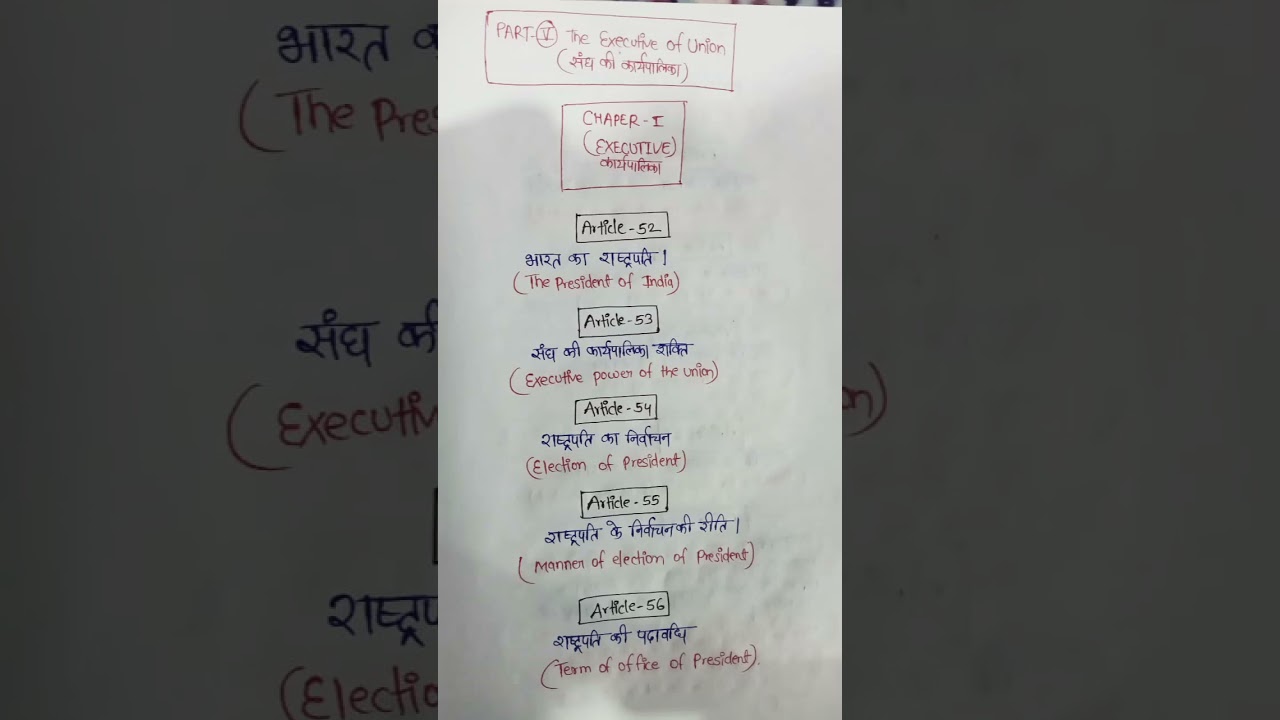 PART-V The Executive of Union
(संघ की कार्यपालिका)
CHAPER-I
(EXECUTIVE)
कार्यपालिका
Article-52
भारत का राष्ट्रपति।
(The President of India)
Article-53
संघ की कार्यपालिका शक्ति
(Executive power of the union)
Article-54
राष्ट्रपति का निर्वाचन
(Election of President)
Article-55
राष्ट्रपति के निर्वाचन की रीति।
(Manner of election of President)
Article-56
राष्ट्रपति की पदावधि
(Term of office of President).